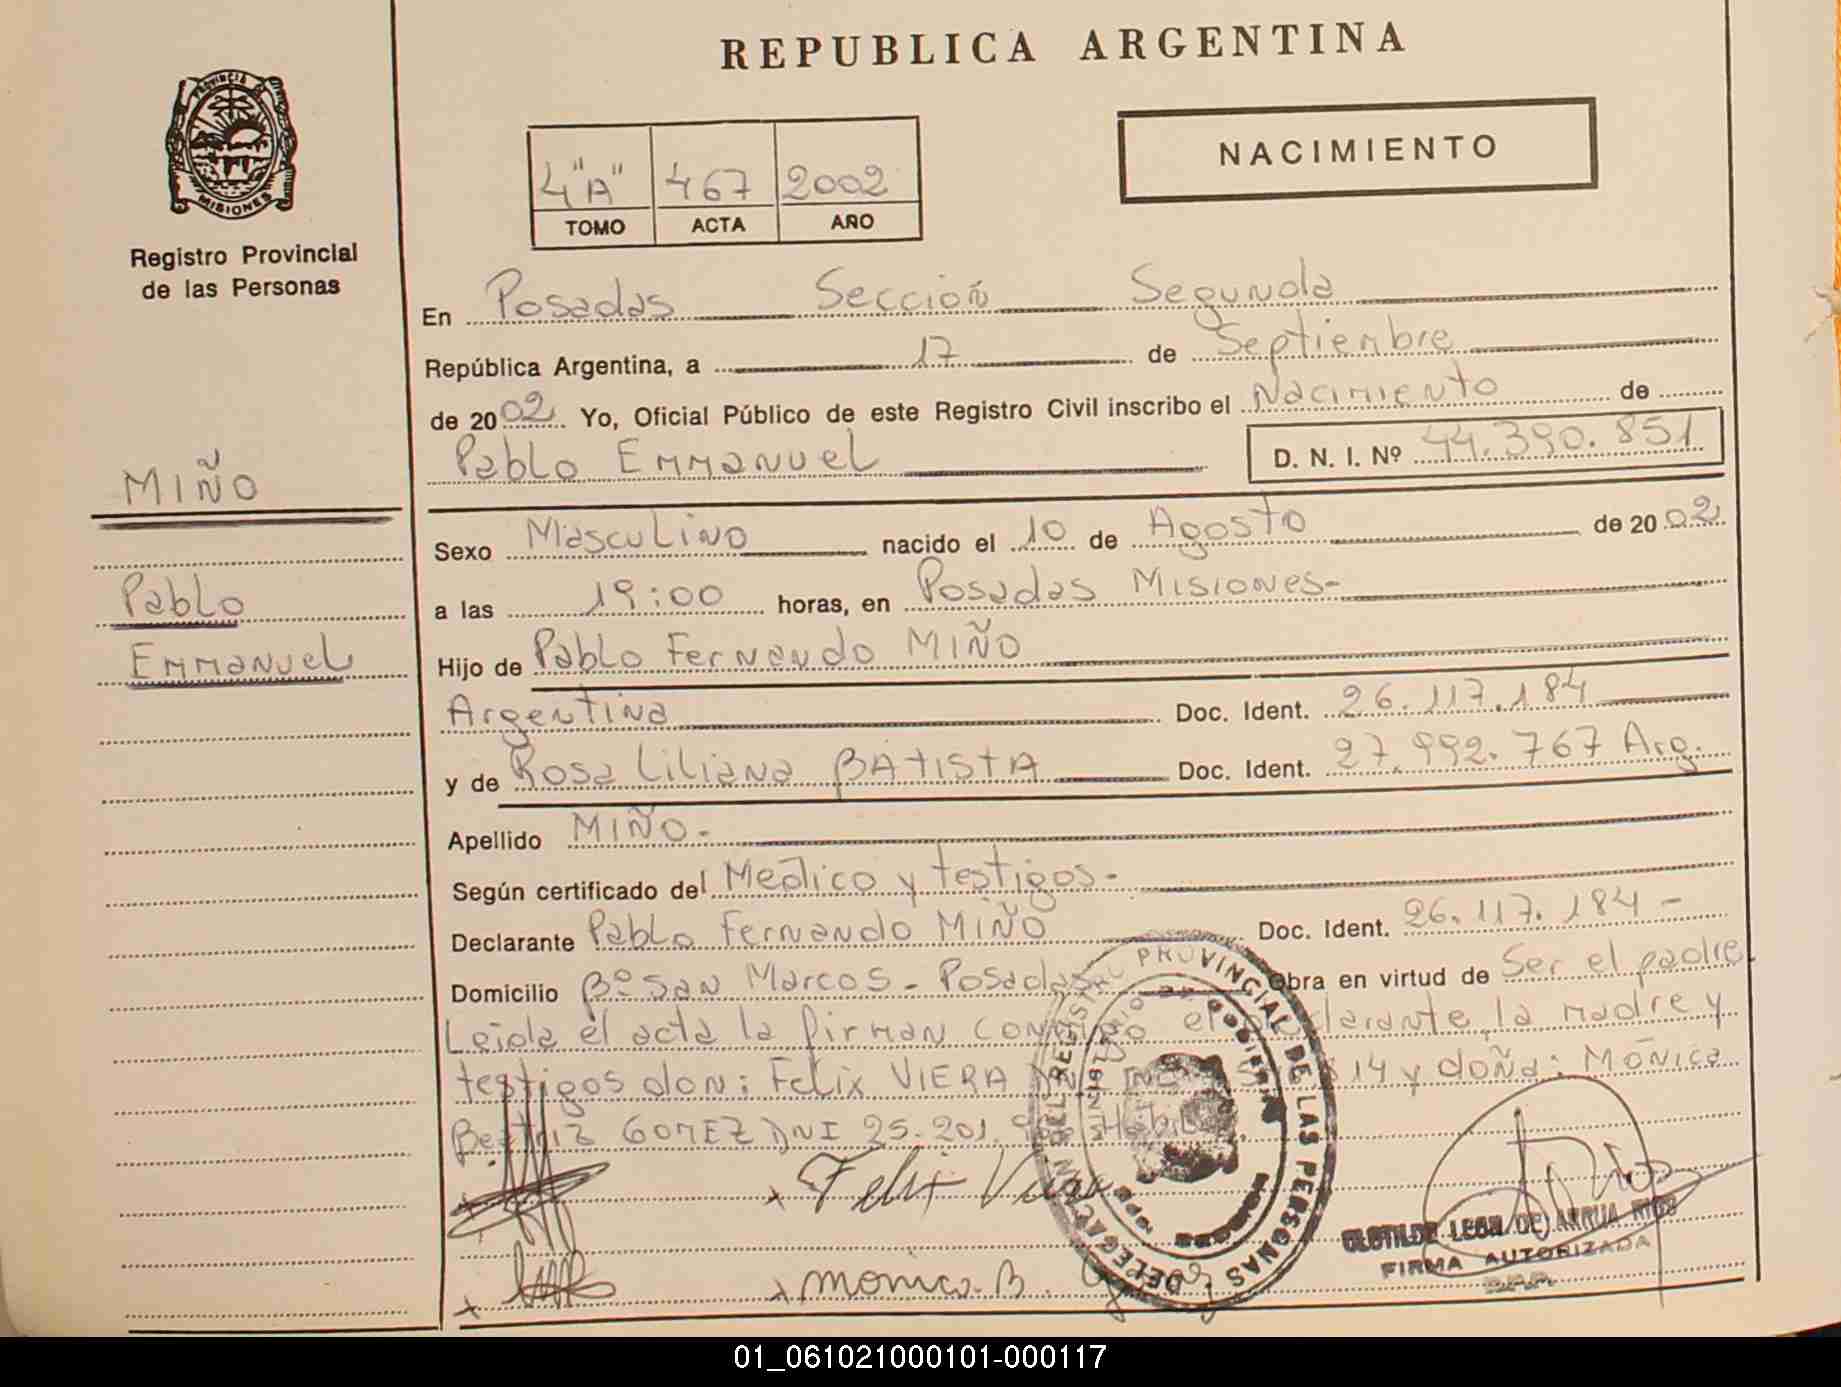 REPUBLICA ARGENTINA
PROVINCIA
MISIONES
Registro Provincial
de las Personas
NACIMIENTO
4"A" 467 2002
TOMO ACTA AÑO
En Posadas Sección Segunda
República Argentina, a 17 de Septiembre
de 2002 Yo, Oficial Público de este Registro Civil inscribo el Nacimiento de
Pablo Emmanuel D. N. I. Nº 44.390.851
MIÑO
Pablo
Emmanuel
Sexo Masculino nacido el 10 de Agosto de 2002
a las 19:00 horas, en Posadas Misiones-
Hijo de Pablo Fernando MIÑO
Argentina Doc. Ident. 26.117.184
y de Rosa Liliana BATISTA Doc. Ident. 27.992.767 Arg.
Apellido MIÑO-
Según certificado del Medico y testigos-
Declarante Pablo Fernando MIÑO Doc. Ident. 26.117.184-
Domicilio Bº San Marcos - Posadas Obra en virtud de Ser el padre
Leida el acta la firman conmigo el declarante, la madre y
testigos don: Felix VIERA DNI 814 y doña: Mónica
Beatriz GOMEZ DNI 25.201.
Felix Viera
monica B.
DELEGACION DEL REGISTRO PROVINCIAL DE LAS PERSONAS
MINISTERIO DE GOBIERNO
CLOTILDE LEON DE ARRUA RIOS
FIRMA AUTORIZADA
R.P.P.
01_061021000101-000117